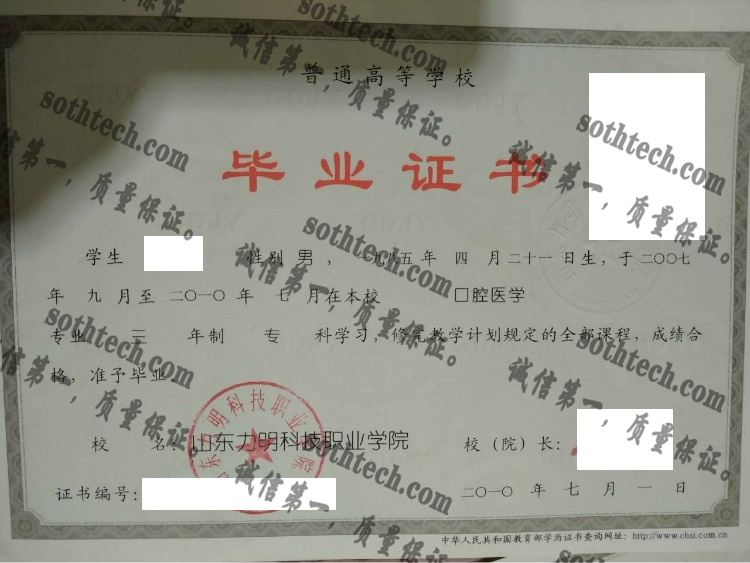 普通高等学校
毕业证书
学生 性别 男 ， 一九八五年 四 月二十一日生，于二〇〇七
年 九 月至 二〇一〇 年 七 月在本校 口腔医学
专业 三 年制 专 科学习，修完教学计划规定的全部课程，成绩合
格，准予毕业。
校 名：山东力明科技职业学院 校（院）长：
证书编号： 二〇一〇 年 七 月 一 日
中华人民共和国教育部学历证书查询网址：http://www.chsi.com.cn
山东力明科技职业学院
sothtech.com
诚信第一，质量保证。
sothtech.com
诚信第一，质量保证。
sothtech.com
诚信第一，质量保证。
sothtech.com
诚信第一，质量保证。
sothtech.com
诚信第一，质量保证。
sothtech.com
诚信第一，质量保证。
sothtech.com
诚信第一，质量保证。
sothtech.com
诚信第一，质量保证。